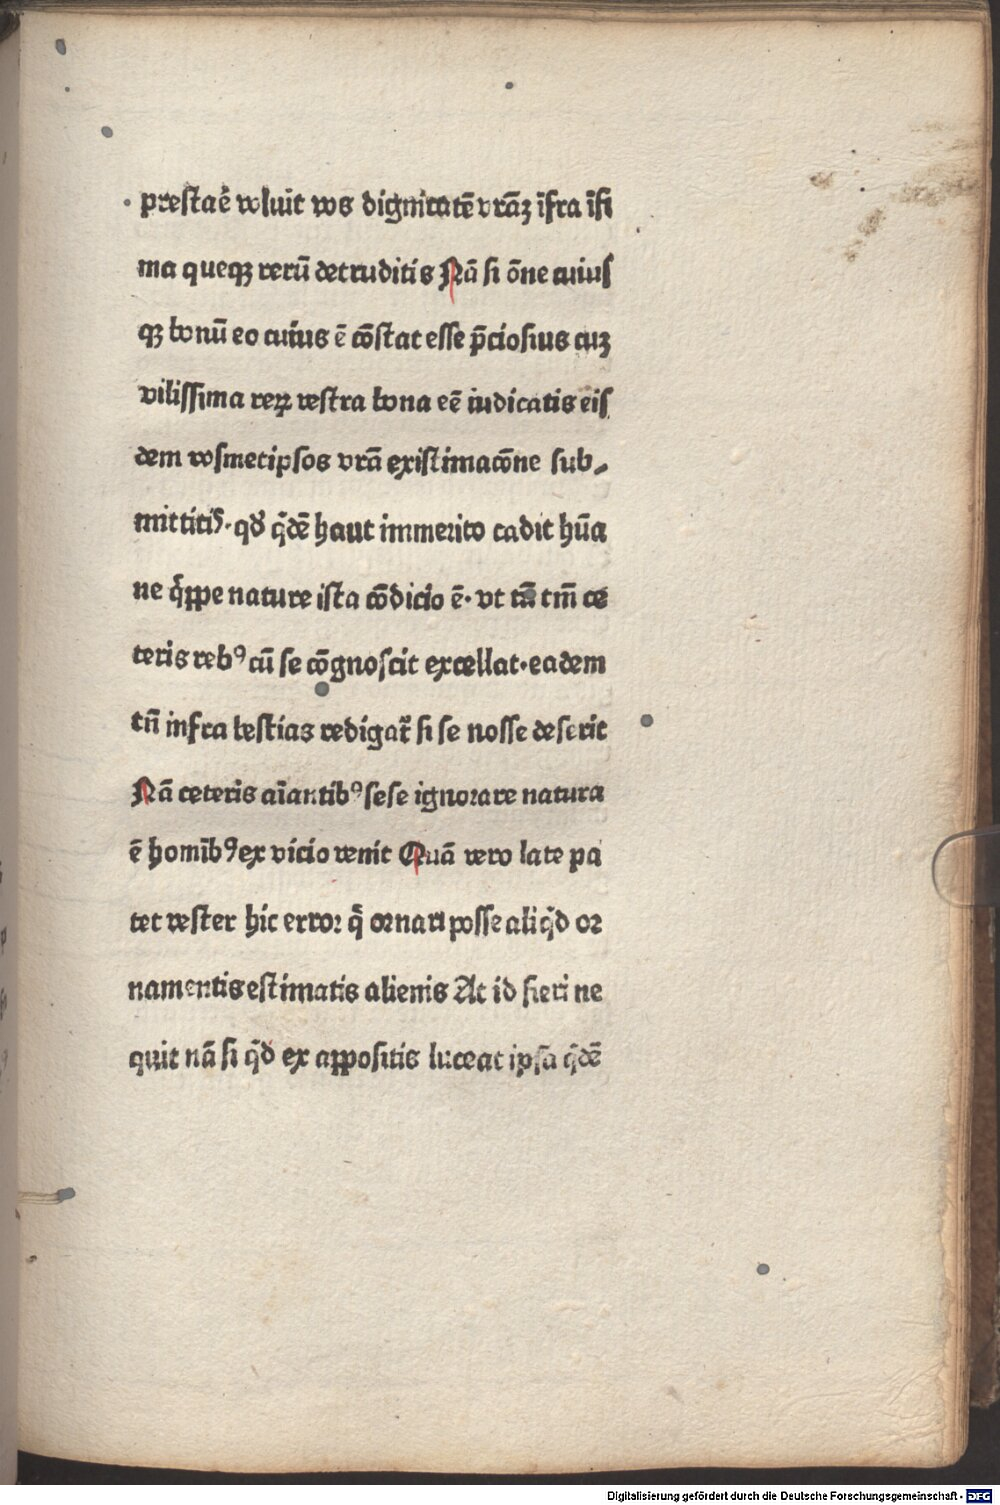 prestaē voluit vos dignitatē vrāꝫ īfra īfi
ma queqꝫ rerū detruditis Nā si ōne cuius
qꝫ bonū eo cuius ē cōstat esse p̄ciosius cuꝫ
vilissima reꝝ vestra bona eē iudicatis eis
dem vosmetipsos vrā existimacōne sub⸗
mittitis. qd̓ q̇dē haut immerito cadit hūa
ne q̇ppe nature ista cōdicio ē. vt tū tm̄ ce
teris rebꝰ cū se cōgnoscit excellat. eadem
tn̄ infra bestias redigat᷑ si se nosse desierit
Nā ceteris aīantibꝰ sese ignorare natura
ē homībꝰ ex vicio venit Quā vero late pa
tet vester hic error q̄ ornari posse aliq̇d or
namentis estimatis alienis At id fieri ne
quit nā si q̇d ex appositis luceat ipsa q̇dē
Digitalisierung gefördert durch die Deutsche Forschungsgemeinschaft - DFG